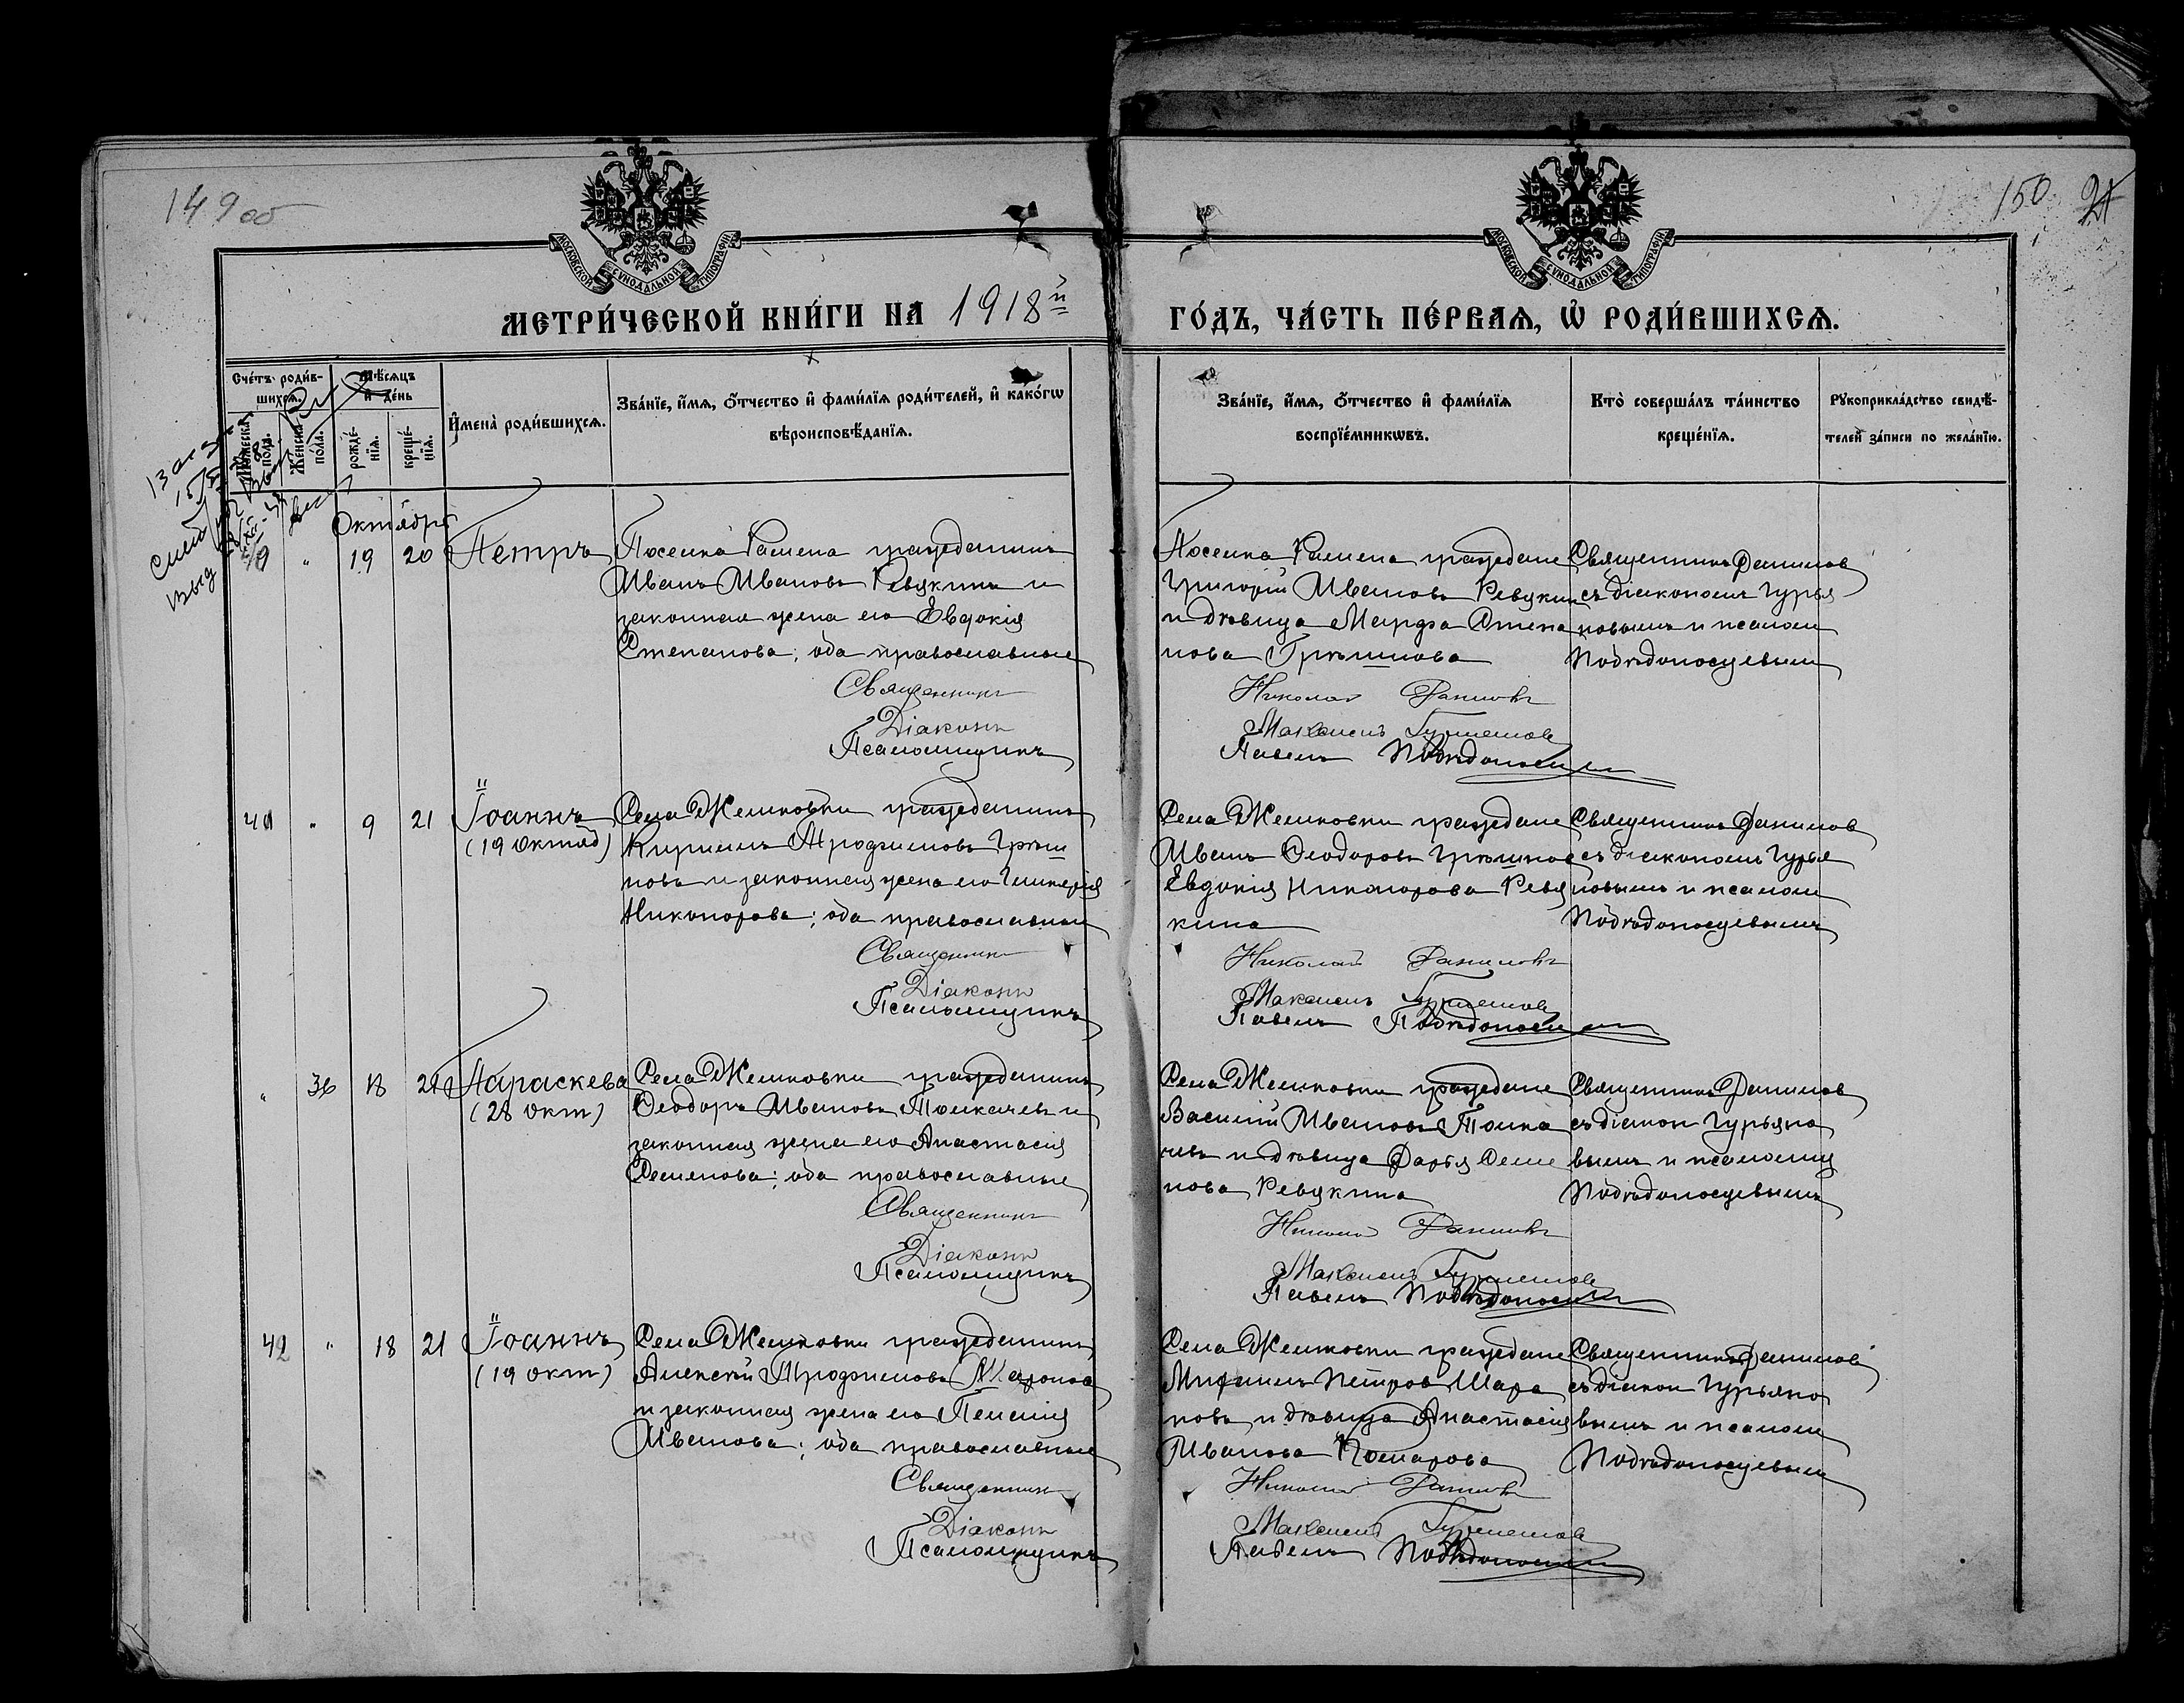 149 об
150 21
МОСКОВСКОЙ СУНОДАЛЬНОЙ ТИПОГРАФІИ
МОСКОВСКОЙ СУНОДАЛЬНОЙ ТИПОГРАФІИ
МЕТРИ́ЧЕСКОЙ КНИ́ГИ НА 1918й
ГО́ДЪ, ЧА́СТЬ ПЕ́РВАѦ, Ѡ҆ РОДИ́ВШИХСѦ.
Сче́тъ роди́в-
шихсѧ.
Мѣ́сѧцъ
и҆ де́нь
Мꙋжеска
пола.
Же́нска
по́ла.
рожде́-
нїѧ.
креще́-
нїѧ.
И҆мена̀ роди́вшихсѧ.
Зва́нїе, и҆́мѧ, ѻ҆́тчество и҆ фами́лїѧ роди́телей, и҆ како́гѡ
вѣроисповѣ́данїѧ.
Зва́нїе, и҆́мѧ, ѻ҆́тчество и҆ фами́лїѧ
воспрїе́мникѡвъ.
Кто̀ соверша́лъ та́инство
креще́нїѧ.
Рꙋкоприкла́дство свидѣ́-
телей за́писи по жела́нїю.
Октябрь
40 " 19 20 Петръ
Поселка Рамена гражданинъ
Иванъ Ивановъ Ревукинъ и
законная жена его Евдокія
Степанова; оба православные
Священникъ
Діаконъ
Псаломщикъ
Поселка Рамена граждане
Григорій Ивановъ Ревукин
и дѣвица Марфа Степа
нова Грѣшнова
Николай Даниловъ
Максимъ Гурьяновъ
Павелъ Побѣдоносцевъ
Священникъ Данилов
съ діакономъ Гурья
новымъ и псалом
Побѣдоносцевым
41 " 9 21 Іоаннъ
(19 октяб)
Села Жемковки гражданинъ
Кириллъ Трофимовъ Грѣш
новъ и законная жена его Гликерія
Никонорова; оба православные
Священникъ
Діаконъ
Псаломщикъ
Села Жемковки граждане
Иванъ Ѳеодоровъ Грѣшнов
Евдокія Никонорова Ревя
кина
Николай Даниловъ
Максимъ Гурьяновъ
Павелъ Побѣдоносцевъ
Священникъ Данилов
съ діакономъ Гурья
новымъ и псалом
Побѣдоносцевымъ
" 36 18 21 Параскева
(28 окт)
Села Жемковки гражданинъ
Ѳеодоръ Ивановъ Толкачевъ и
законная жена его Анастасія
Семенова; оба православные
Священникъ
Діаконъ
Псаломщикъ
Села Жемковки граждане
Василій Ивановъ Толка
чевъ и дѣвица Дарья Семе
нова Ревукина
Николай Даниловъ
Максимъ Гурьяновъ
Павелъ Побѣдоносцевъ
Священникъ Данилов
съ діакон Гурьяно
вымъ и псаломщ
Побѣдоносцевымъ
42 " 18 21 Іоаннъ
(19 окт)
Села Жемковки гражданинъ
Алексѣй Трофимовъ
и законная жена его Пелагія
Иванова; оба православные
Священникъ
Діаконъ
Псаломщикъ
Села Жемковки граждане
Михаилъ Петров Шаро
новъ и дѣвица Анастасія
Иванова Комарова
Николай Даниловъ
Максимъ Гурьяновъ
Павелъ Побѣдоносцевъ
Священникъ Данилов
съ діакон Гурьяно
вымъ и псалом
Побѣдоносцевым